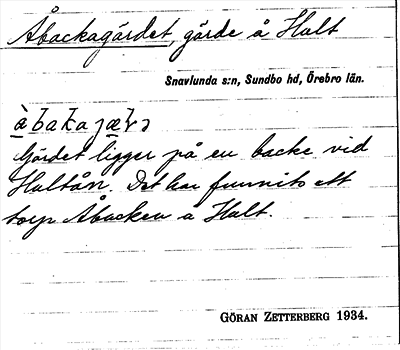 Åbackagärdet, gärde å Halt
Snavlunda s:n, Sundbo hd, Örebro län.
Gärdet ligger på en backe vid
Haltån. Det har funnits ett
torp Åbacken å Halt.
GÖRAN ZETTERBERG 1934.